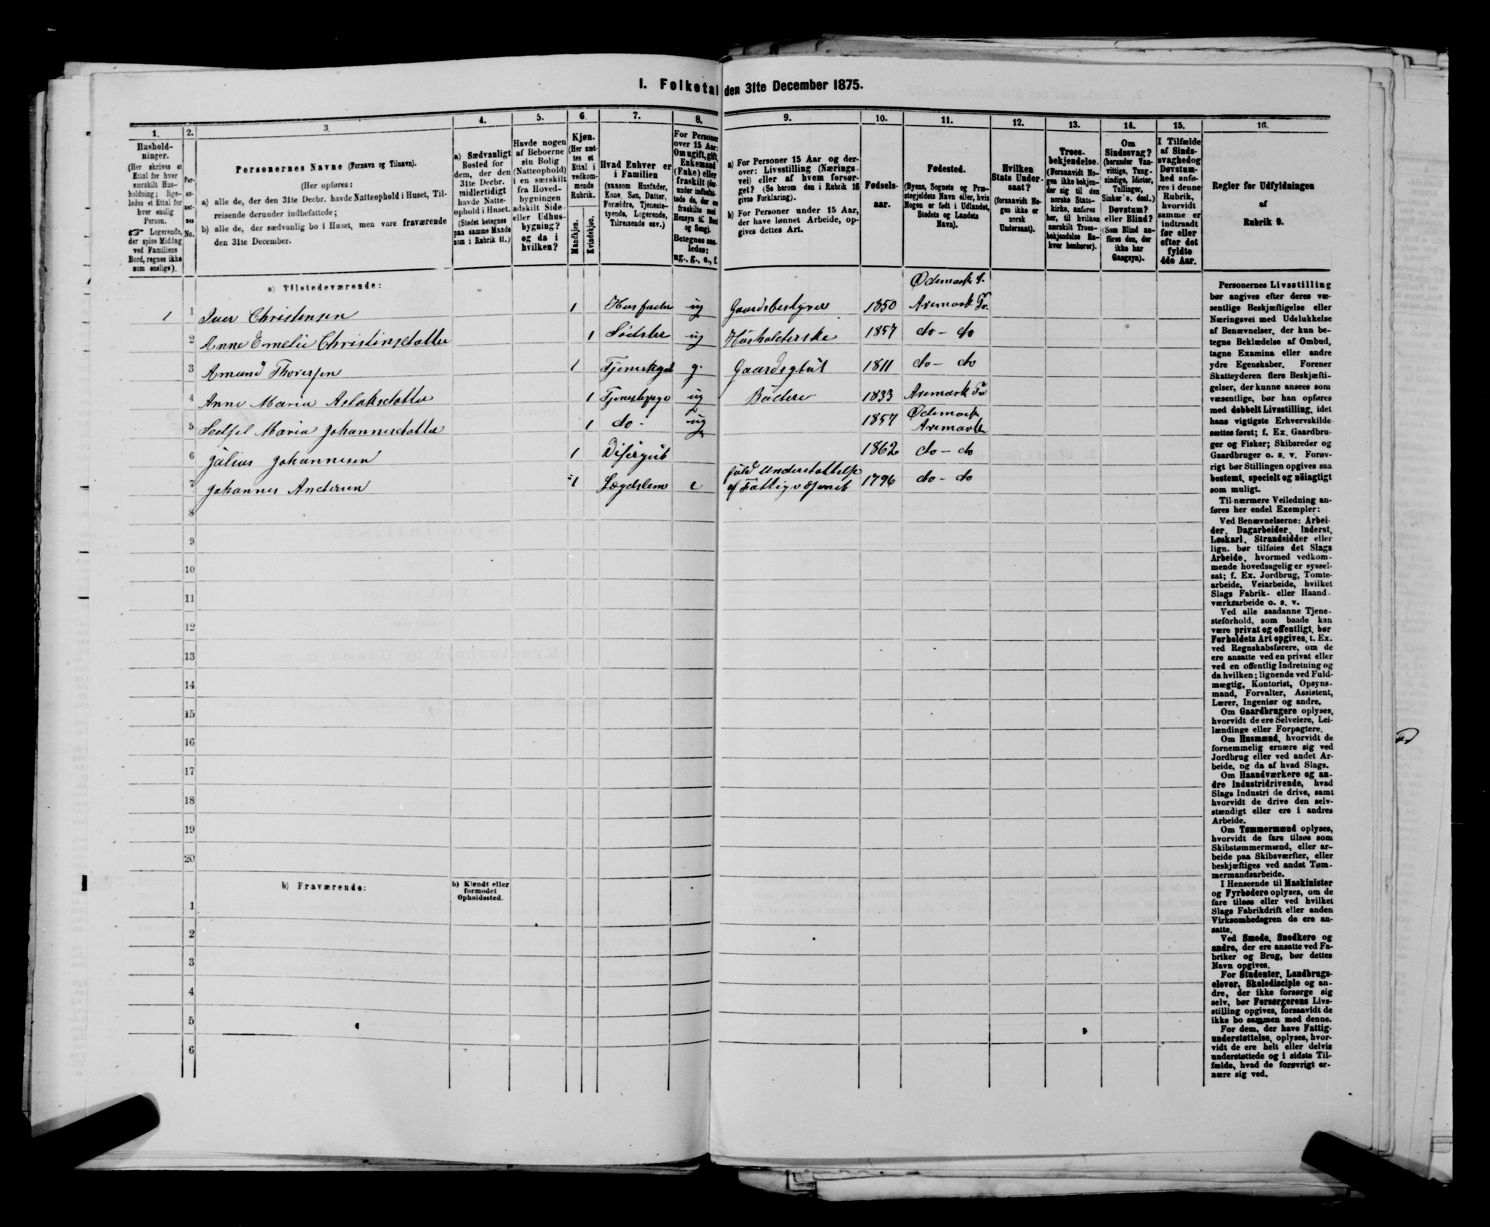 I. Folketal den 31te December 1875.
1.
Hushold-
ninger.
(Her skrives et
Ettal for hver
særskilt Hus-
holdning; lige-
ledes et Ettal for
hver enslig
Person.
☞ Logerende,
der spise Middag
ved Familiens
Bord, regnes ikke
som enslige).
2.
Per-
No.
3.
Personernes Navne (Fornavn og Tilnavn).
(Her opføres:
a) alle de, der den 31te Decbr. havde Natteophold i Huset, Til-
reisende derunder indbefattede;
b) alle de, der sædvanlig bo i Huset, men vare fraværende
den 31te December.
4.
a) Sædvanligt
Bosted for
dem, der den
31te Decbr.
midlertidigt
havde Natte-
ophold i Huset.
(Stedet betegnes
paa samme Maade
som i Rubrik 11.)
5.
Havde nogen
af Beboerne
sin Bolig
(Natteophold)
i en særskilt
fra Hoved-
bygningen
adskilt Side-
eller Udhus-
bygning?
og da i
hvilken?
6.
Kjøn.
(Her sæt-
tes et
Ettal i
vedkom-
mende
Rubrik.
Mandkjøn.
Kvindekjøn.
7.
Hvad Enhver er
i Familien
(saasom Husfader,
Kone, Søn, Datter,
Forældre, Tjeneste-
tyende, Logerende,
Tilreisende osv.)
8.
For Personer
over 15 Aar:
Om ugift, gift,
Enkemand
(Enke) eller
fraskilt
Betegnes saa-
ledes:
ug., g., e., f.
9.
a) For Personer 15 Aar og der-
over: Livsstilling (Nærings-
vei) eller af hvem forsør-
get? (Se herom den i Rubrik 16
givne Forklaring).
b) For Personer under 15 Aar,
der have lønnet Arbeide, op-
gives dettes Art.
10.
Fødsels-
aar.
11.
Fødested.
(Byens, Sognets og Præ-
stegjeldets Navn eller, hvis
Nogen er født i Udlandet,
Stedets og Landets
Navn).
12.
Hvilken
Stats Under-
saat?
(forsaavidt No-
gen ikke er
norsk
Undersaat).
13.
Troes-
bekjendelse.
(Forsaavidt No-
gen ikke bekjen-
der sig til den
norske Stats-
kirke, anføres
her, til hvilken
særskilt Troes-
bekjendelse En-
hver henhører).
14.
Om
Sindssvag?
(herunder Van-
vittige, Tung-
sindige, Idioter,
Tullinger,
Sinker o. desl.)
Døvstum?
eller Blind?
(Som Blind an-
føres den, der
ikke har
Gangsyn).
15.
I Tilfælde
af Sinds-
svaghed og
Døvstum-
hed anfø-
res i denne
Rubrik,
hvorvidt
samme er
indtraadt
før eller
efter det
fyldte
4de Aar.
16.
Regler for Udfyldningen
af
Rubrik 9.
a) Tilstedeværende:
1 1 Iver Christensen 1 Husfader ug Gaardsbestyrer 1850 Ødemark S. Aremark Pr.
2 Anne Emelie Christinsdatter 1 Södster ug Husholderske 1857 do - do
3 Amund Thoresen 1 g. 1811 do - do
4 Anne Maria Aslaksdatter 1 ug 1833 Aremark Pr
5 Maria Johannesdatter 1 do - ug 1857 Ødemark Aremark
6 Julius Johannesen 1 1862 do - do
7 Johannes Andersen 1 Lægdslem e Understøttelse af Fattigvæsenet 1796 do - do
8
9
10
11
12
13
14
15
16
17
18
19
20
b) Fraværende:
b) Kjendt eller
formodet
Opholdssted.
1
2
3
4
5
6
Personernes Livsstilling
bør angives efter deres væ-
sentlige Beskjæftigelse eller
Næringsvei med Udelukkelse
af Benævnelser, der kun be-
tegne Beklædelse af Ombud,
tagne Examina eller andre
ydre Egenskaber. Forener
Skatteyderen flere Beskjæfti-
gelser, der kunne ansees som
væsentlige, bør han opføres
med dobbelt Livsstilling, idet
hans vigtigste Erhvervskilde
sættes først; f. Ex. Gaardbru-
ger og Fisker; Skibsreder og
Gaardbruger o. s. v. Forøv-
rigt bør Stillingen opgives saa
bestemt, specielt og nøiagtigt
som muligt.
Til nærmere Veiledning an-
føres her endel Exempler:
Ved Benævnelserne: Arbei-
der, Dagarbeider, Inderst,
Løskarl, Strandsidder eller
lign. bør tilføies det Slags
Arbeide, hvormed vedkom-
mende hovedsagelig er syssel-
sat; f. Ex. Jordbrug, Tomte-
arbeide, Veiarbeide, hvilket
Slags Fabrik- eller Haand-
værksarbeide o. s. v.
Ved alle saadanne Tjene-
steforhold, som baade kan
være privat og offentligt, bør
Forholdets Art opgives, t. Ex.
ved Regnskabsførere, om de
ere ansatte ved en privat eller
ved en offentlig Indretning og
da hvilken; lignende ved Fuld-
mægtig, Kontorist, Opsyns-
mand, Forvalter, Assistent,
Lærer, Ingeniør og andre.
Om Gaardbrugere oplyses,
hvorvidt de ere Selveiere, Lei-
lændinge eller Forpagtere.
Om Husmænd, hvorvidt de
fornemmelig ernære sig ved
Jordbrug eller ved andet Ar-
beide, og da af hvad Slags.
Om Haandværkere og an-
dre Industridrivende, hvad
Slags Industri de drive, samt
hvorvidt de drive den selv-
stændigt eller ere i andres
Arbeide.
Om Tømmermænd oplyses,
hvorvidt de fare tilsøs som
Skibstømmermænd, eller ar-
beide paa Skibsværfter, eller
beskjæftiges ved andet Tøm-
mermandsarbeide.
I Henseende til Maskinister
og Fyrbødere oplyses, om de
fare tilsøs eller ved hvilket
Slags Fabrikdrift eller anden
Virksomhedsgren de ere an-
satte.
Ved Smede, Snedkere og
andre, der ere ansatte ved Fa-
briker og Brug, bør dettes
Navn opgives.
For Studenter, Landbrugs-
elever, Skoledisciple og an-
dre, der ikke forsørge sig
selv, bør Forsørgerens Livs-
stilling opgives, forsaavidt de
ikke bo sammen med denne.
For dem, der have Fattig-
understøttelse, oplyses, hvor-
vidt de ere helt eller delvis
understøttede og i sidste Til-
fælde, hvad de forøvrigt er-
nære sig ved.